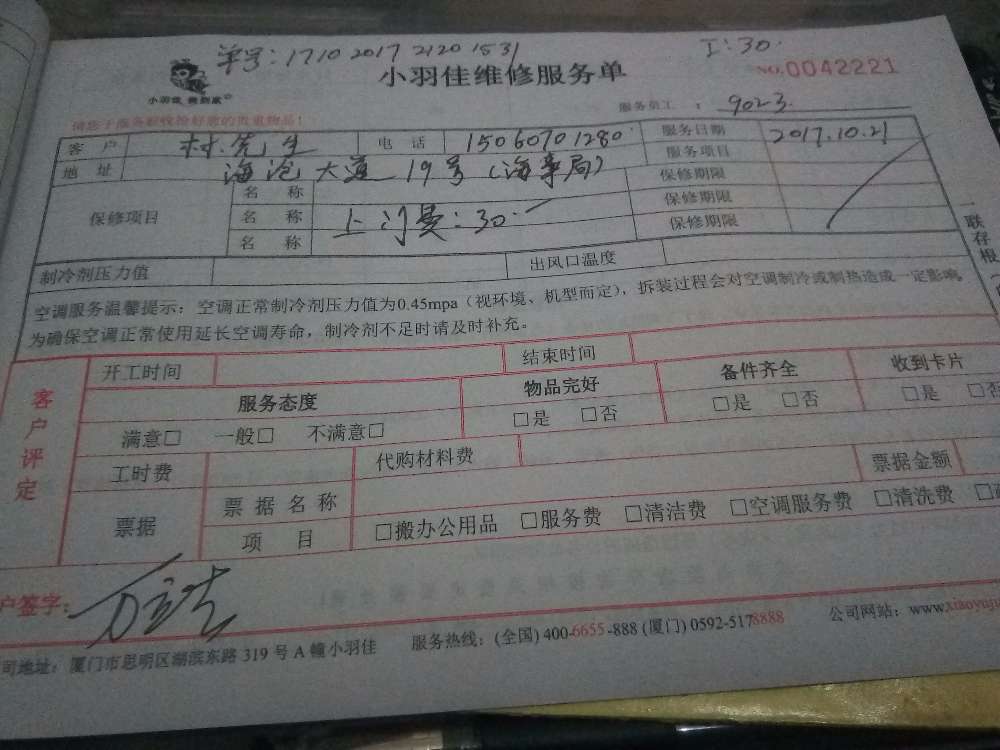 单号:1710 2017 2120 1531
工:30.
小羽佳维修服务单
NO.0042221
小羽佳
服务员工 : 9023
客 户 林先生 电 话 15060701280 服务日期 2017.10.21
地 址 海沧大道19号(海事局) 服务项目
保修项目
名 称 保修期限
名 称 上门费:30. 保修期限
名 称 保修期限
制冷剂压力值 出风口温度
一联存根
空调服务温馨提示:空调正常制冷剂压力值为0.45mpa(视环境、机型而定),拆装过程会对空调制冷或制热造成一定影响。
为确保空调正常使用延长空调寿命,制冷剂不足时请及时补充。
客户评定
开工时间 结束时间
服务态度 物品完好 备件齐全 收到卡片
满意□ 一般□ 不满意□ □是 □否 □是 □否 □是 □否
工时费 代购材料费 票据金额
票据 票据名称
项 目 □搬办公用品 □服务费 □清洁费 □空调服务费 □清洗费
户签字:
司地址:厦门市思明区湖滨东路319号A幢小羽佳 服务热线:(全国)400-6655-888 (厦门)0592-5178888 公司网站:www.xiaoyuji